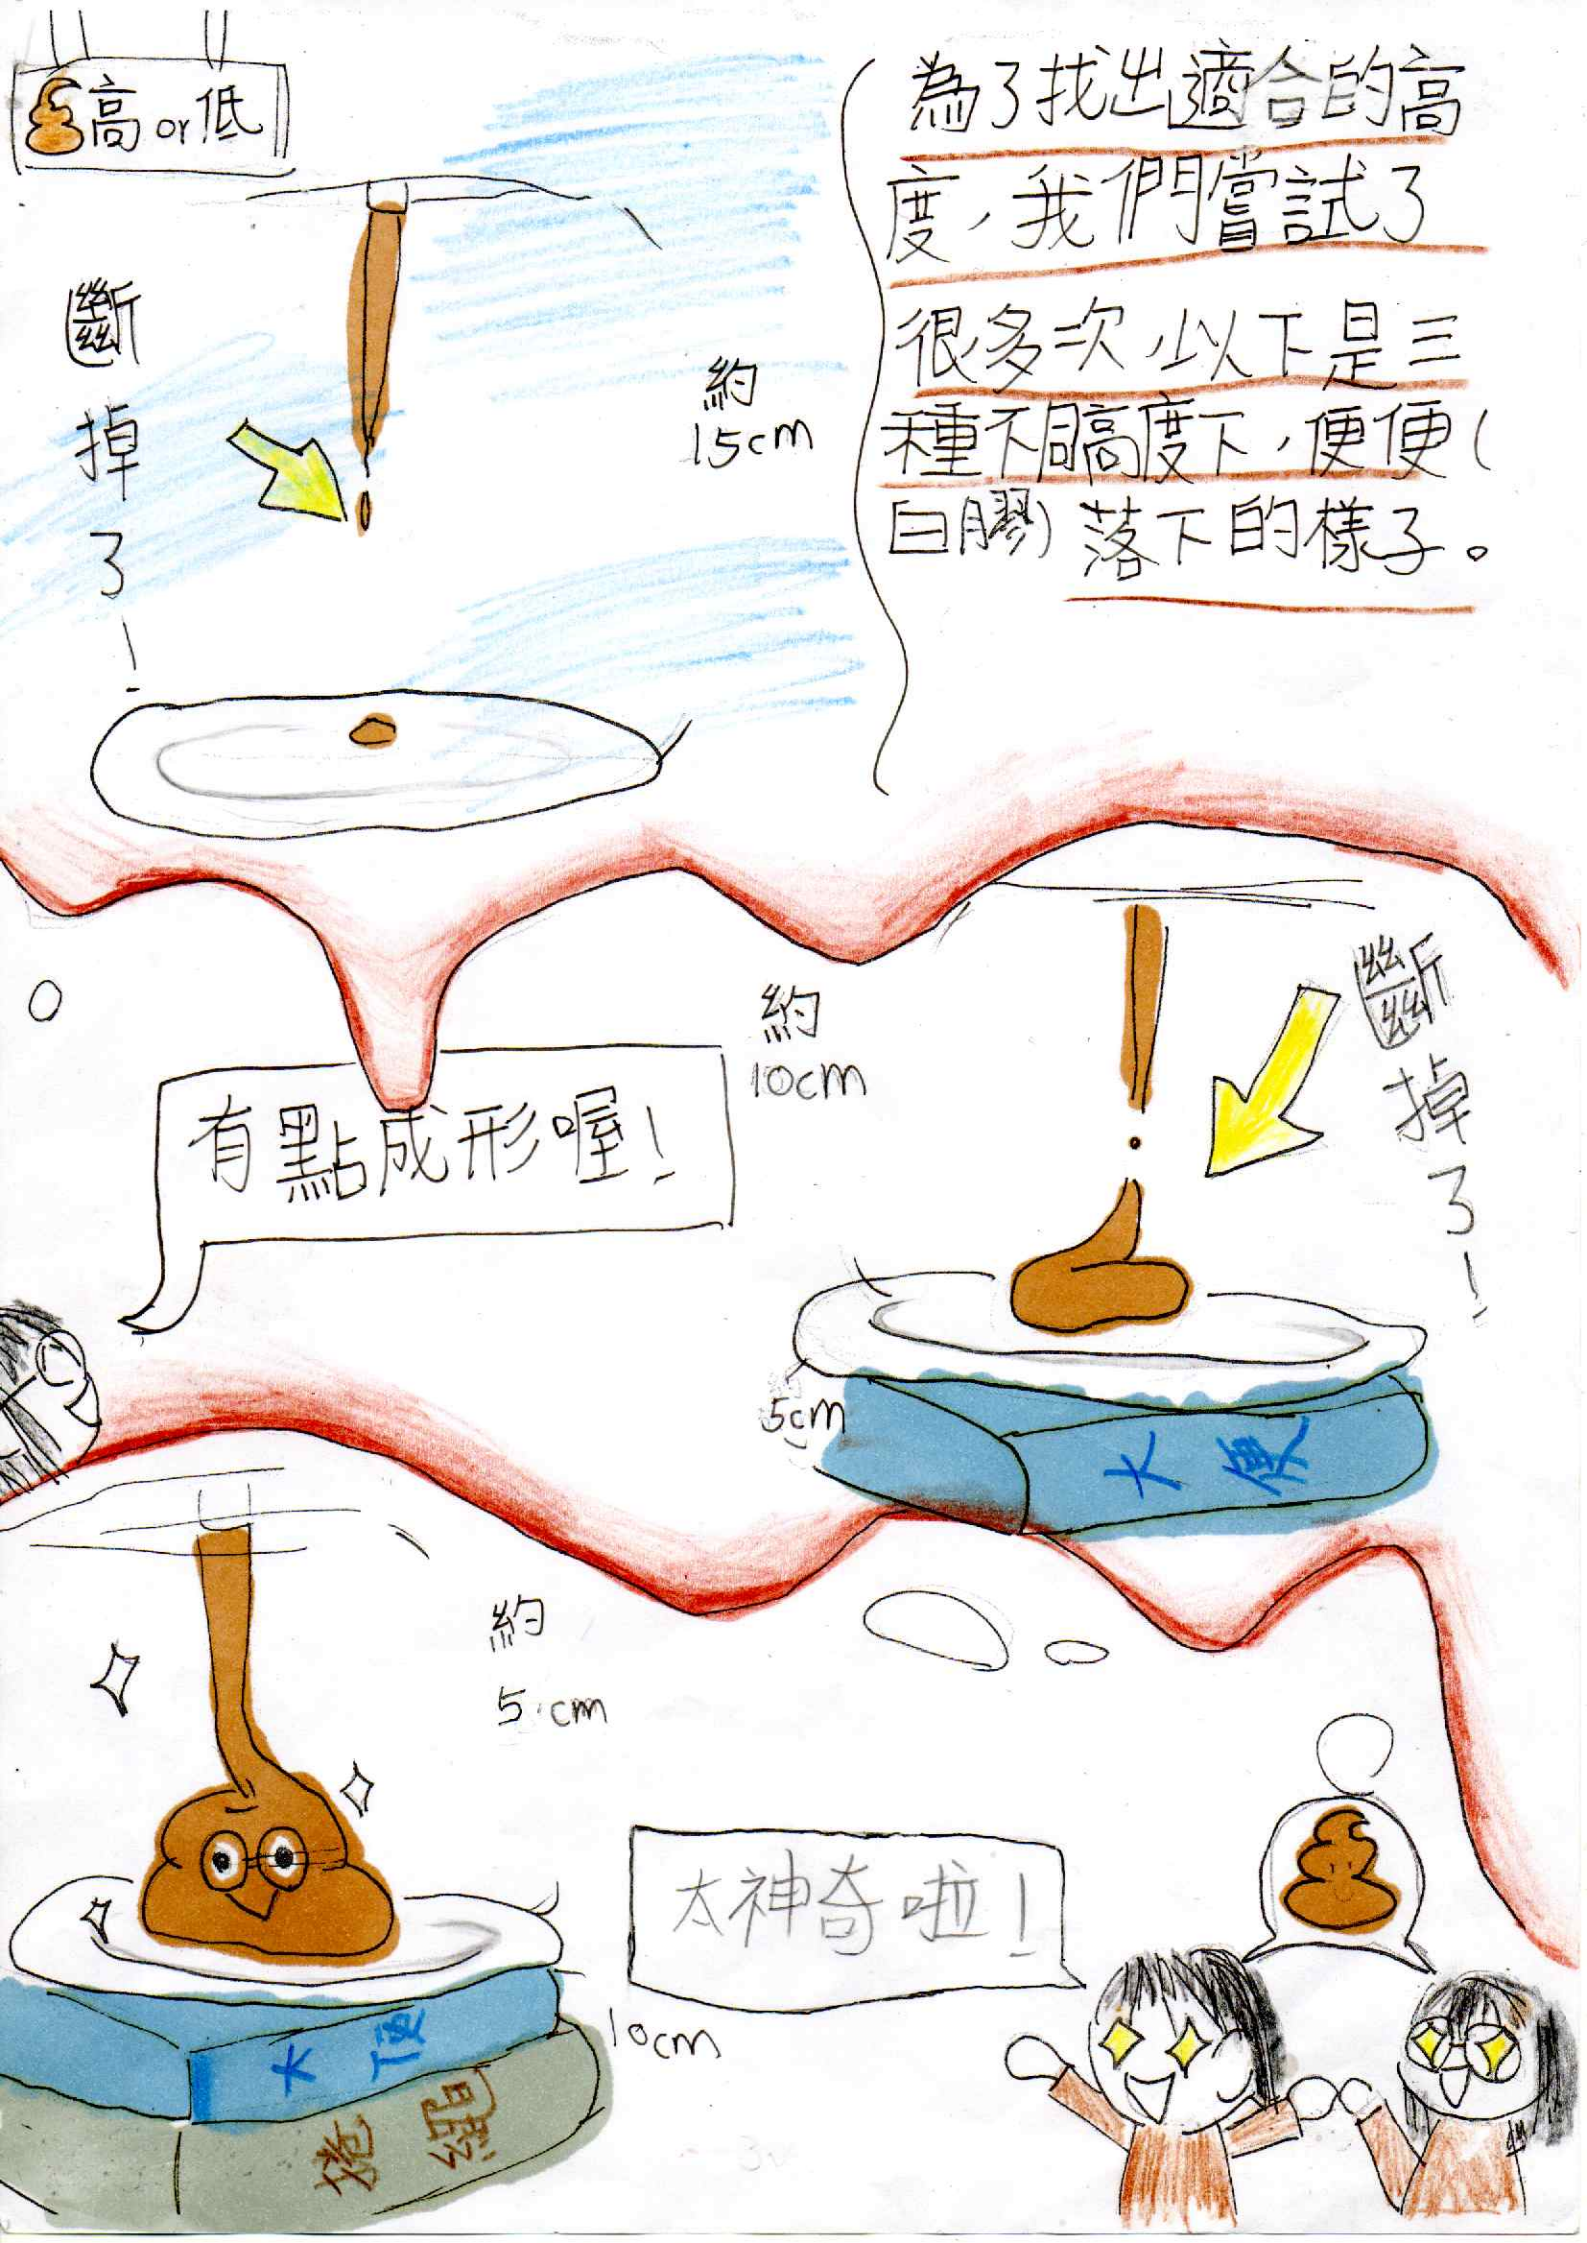 高or低
為了找出適合的高
度，我們嘗試了
很多次，以下是三
種不同高度下，便便(
白膠)落下的樣子。
斷掉了!
約
15cm
約
10cm
斷掉了!
有點成形喔!
5cm
大便
約
5cm
太神奇啦!
10cm
大便